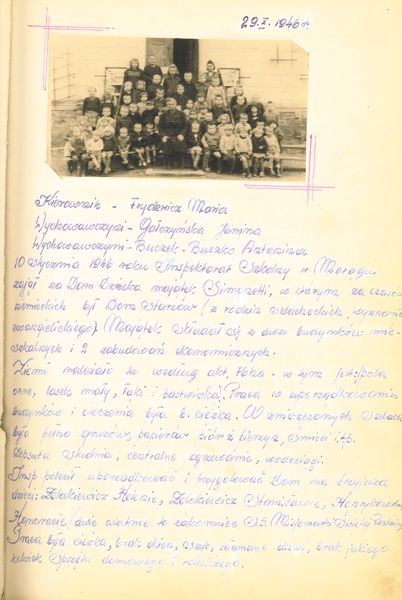 29.X.1946 r.
Kierownik - Frydewicz Maria
Wychowawczyni - Gałczyńska Janina
Wychowawczyni - Buczek-Buczko Antonina
10 stycznia 1946 roku Inspektorat Szkolny w Morągu
zajął za Dom Dziecka majątek Simozetti, w którym za czasów
niemieckich był Dom Starców (z rodzin szlacheckich, wyznania
ewangelickiego). Majątek składał się z dwu budynków mie-
szkalnych i 2 zabudowań ekonomicznych.
Ziemi należało tu według akt w tym
orne, lasek mały, łąki i pastwiska). Praca w uporządkowaniu
budynków i otoczenia była b. ciężka. W zniszczonych salach
było pełno gruzów, papierów pierzy, śmieci itp.
Zepsuta studnia, centralne ogrzewanie, wodociągi.
Insp. polecił uporządkować i przygotować Dom na przyjazd
dzieci; Helenie, Stanisławie,
Honoracie (dwie ostatnie to zakonnice
Praca była ciężka, brak okien, szyb, połamane drzwi, brak jakiego
kolwiek sprzętu domowego i rolniczego.